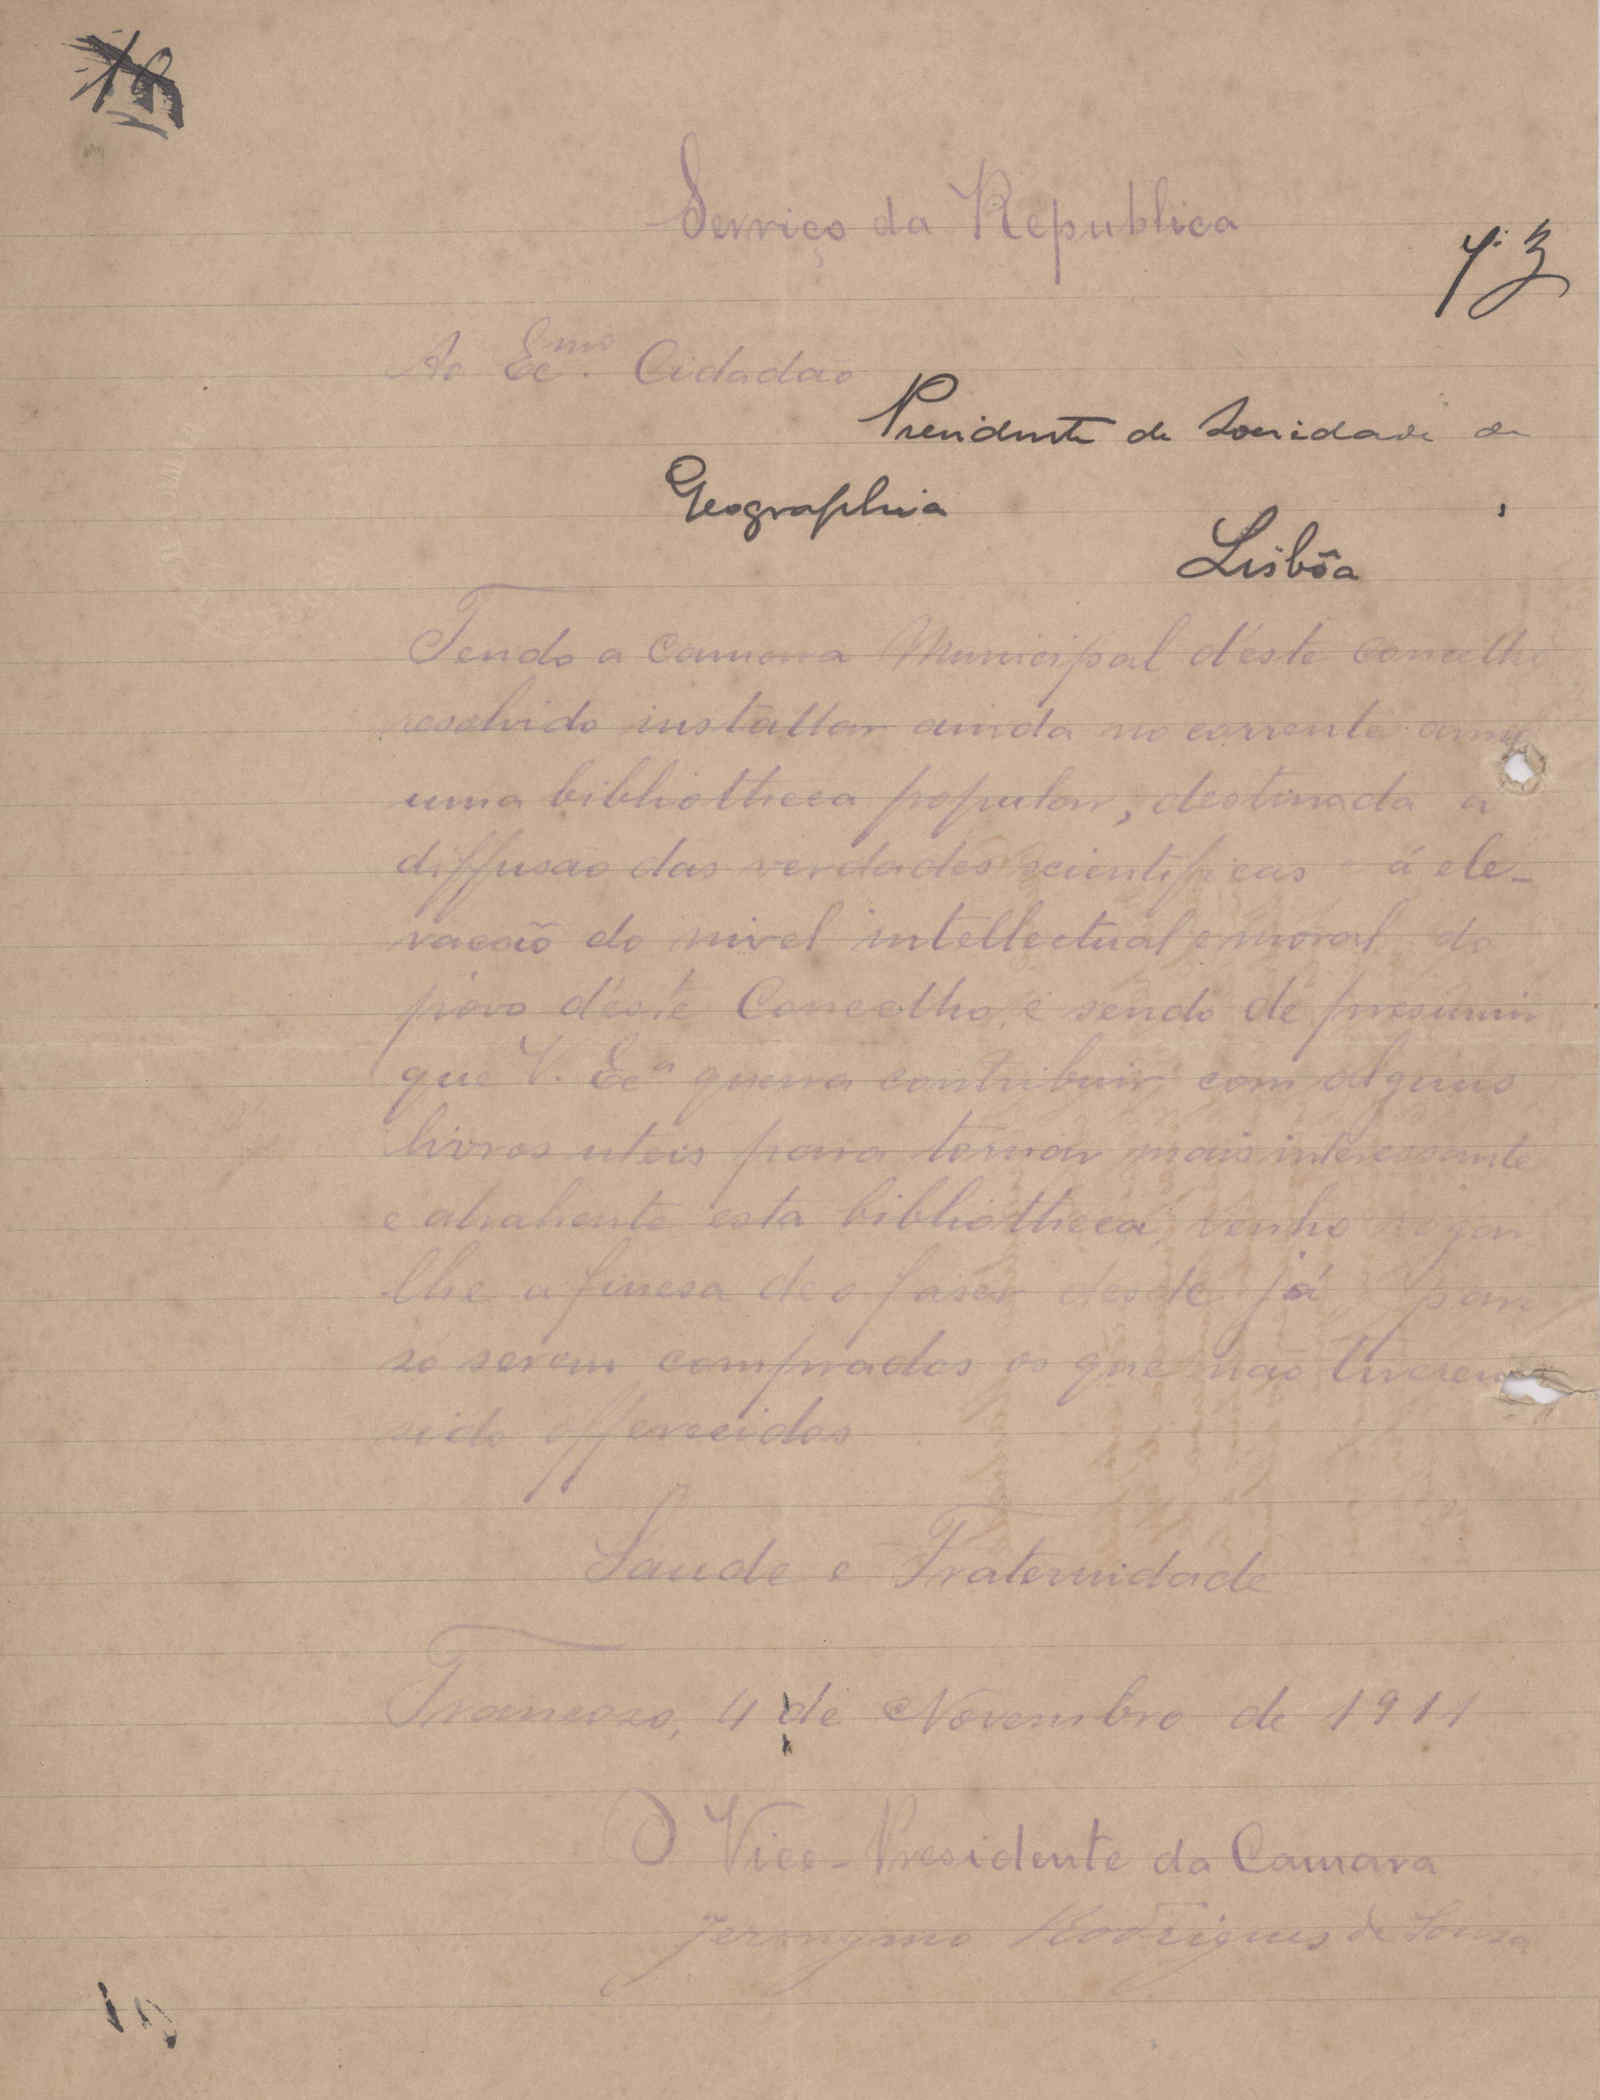 Serviço da Republica
Ao Ee.mo Cidadão
Presidente da Sociedade de
Geographia
Lisbôa
Tendo a Camara Municipal d'este concelho
resolvido installar ainda no corrente anno
uma bibliotheca popular, destinada a
diffusão das verdades scientificas á ele-
vação do nivel intellectual e moral do
povo d'este Concelho, e sendo de presumir
que V. Eea queira contribuir com alguns
livros uteis para tornar mais interessante
e atrahente esta bibliotheca, venho rogar
lhe a finesa de o faser desde já, para
só serem comprados os que não tiverem
sido offerecidos
Saude e Fraternidade
Trancoso, 4 de Novembro de 1911
O Vice-Presidente da Camara
Jeronymo Rodrigues de Souza